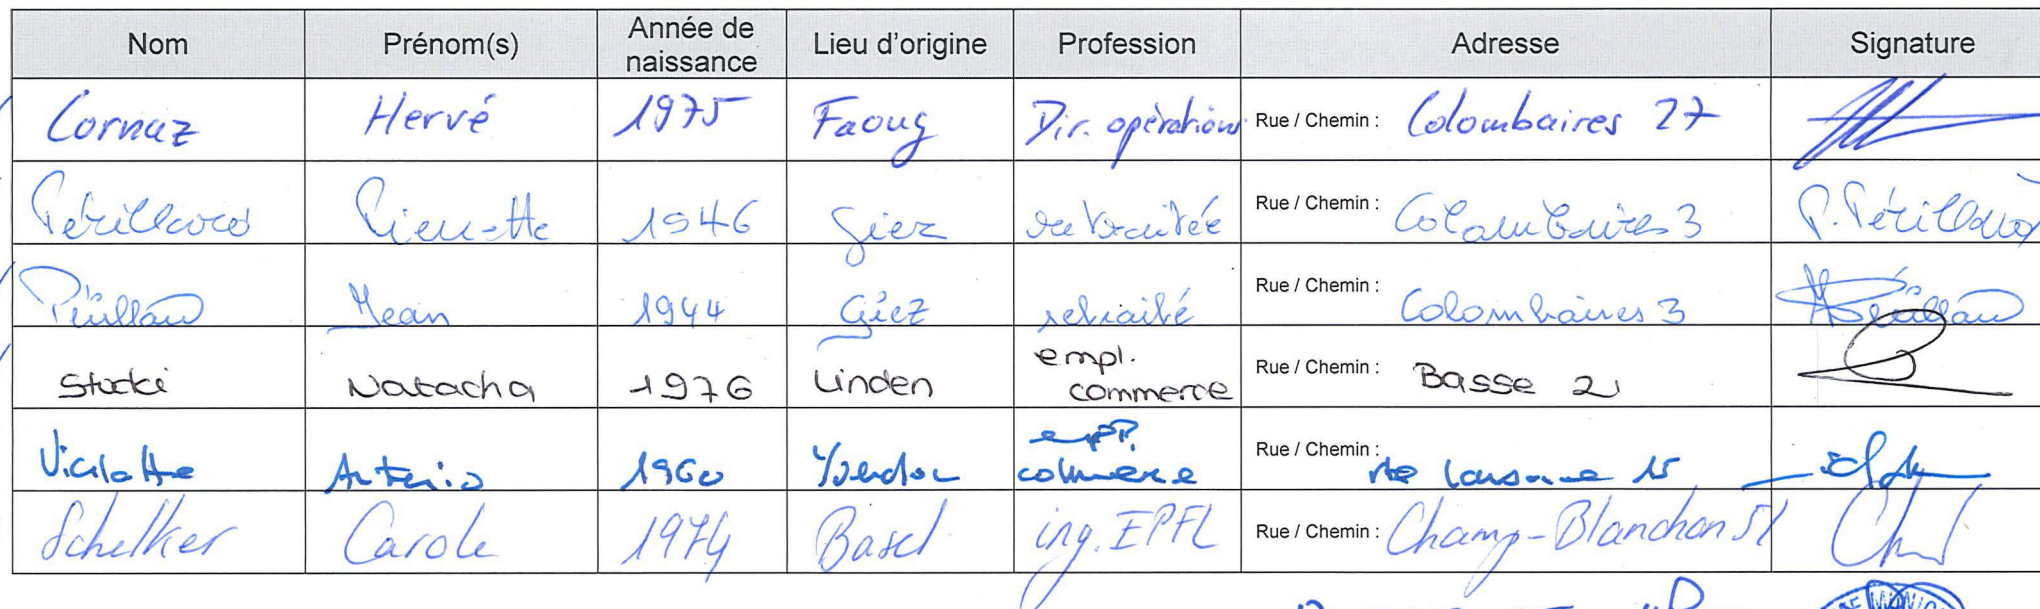 Nom Prénom(s) Année de naissance Lieu d'origine Profession Adresse Signature
Cornaz Hervé 1975 Faoug Dir. opérations Rue / Chemin : Colombaires 27
Périllard Pierrette 1946 Giez retraitée Rue / Chemin : Colombaires 3 P. Périllard
Périllard Jean 1944 Giez retraité Rue / Chemin : Colombaires 3 Périllard
Stucki Natacha 1976 Linden empl. commerce Rue / Chemin : Basse 21
Antonio 1960 Yverdon empl. commerce Rue / Chemin : rte Lausanne 15
Schelker Carole 1974 Basel ing. EPFL Rue / Chemin : Champ-Blanchon 51